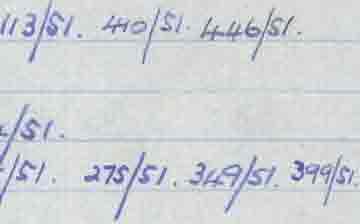 113/51. 440/51. 446/51.
/51.
/51. 275/51. 349/51. 399/51.